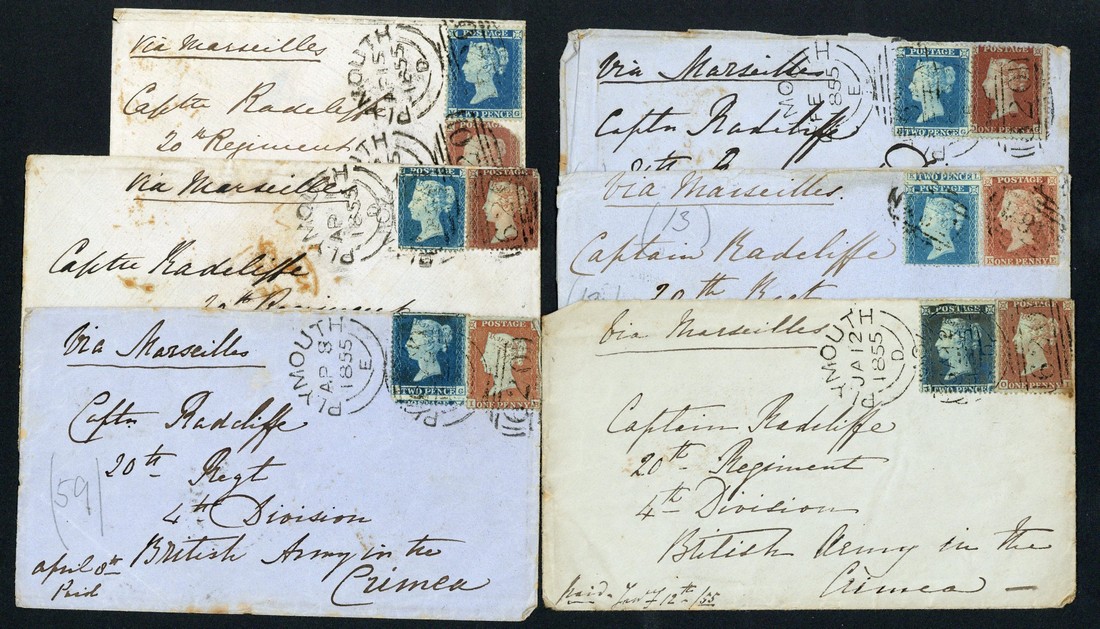 Via Marseilles
Captn Radcliffe
20th Regiment
PLYMOUTH
AP 15
1855
D
TWO PENCE
Via Marseilles
Captn Radcliffe
20th Regiment
PLYMOUTH
AP
1855
D
Via Marseilles
Captn Radcliffe
20th Regt
4th Division
British Army in the
Crimea
(59)
april 8th
Paid
PLYMOUTH
AP 8
1855
E
TWO PENCE
POSTAGE
ONE PENNY
Via Marseilles
Captn Radcliffe
MOUTH
1855
E
POSTAGE
TWO PENCE
POSTAGE
ONE PENNY
Via Marseilles
(13)
Captain Radcliffe
20th Regt
TWO PENCE
POSTAGE
POSTAGE
ONE PENNY
Via Marseilles
Captain Radcliffe
20th Regiment
4th Division
British Army in the
Crimea
Paid Jany 12th /55
PLYMOUTH
JA 12
1855
D
POSTAGE
TWO PENCE
POSTAGE
ONE PENNY